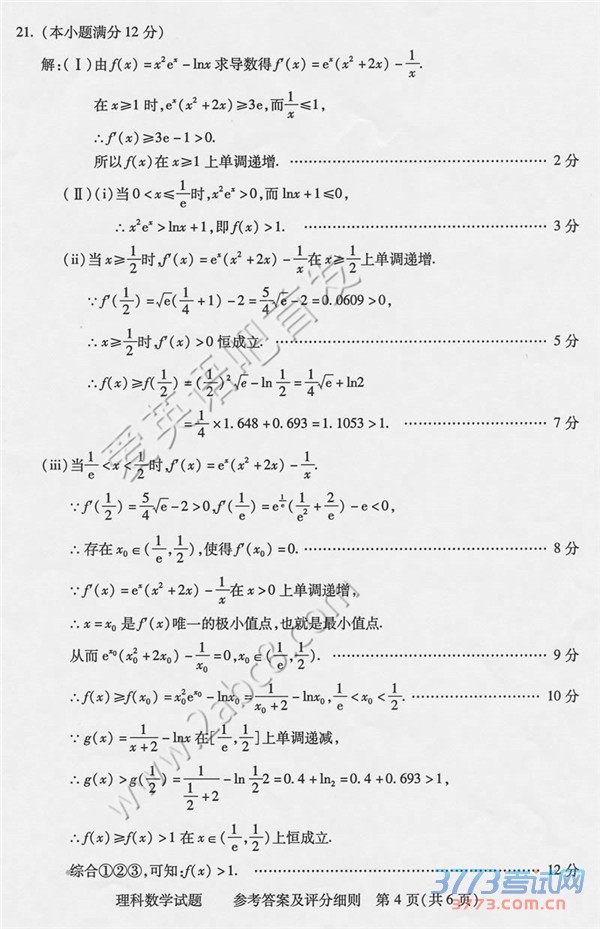 21. (本小题满分12分)
解:(Ⅰ)由f(x)=x²eˣ-lnx求导数得f′(x)=eˣ(x²+2x)-1/x.
在x≥1时,eˣ(x²+2x)≥3e,而1/x≤1,
∴f′(x)≥3e-1>0.
所以f(x)在x≥1上单调递增. …………………………………… 2分
(Ⅱ)(i)当0<x≤1/e时,x²eˣ>0,而lnx+1≤0,
∴x²eˣ>lnx+1,即f(x)>1. …………………………………… 3分
(ii)当x≥1/2时,f′(x)=eˣ(x²+2x)-1/x在x≥1/2上单调递增.
∵f′(1/2)=√e(1/4+1)-2=5/4√e-2=0.0609>0,
∴x≥1/2时,f′(x)>0恒成立. …………………………………… 5分
∴f(x)≥f(1/2)=(1/2)²√e-ln1/2=1/4√e+ln2
=1/4×1.648+0.693=1.1053>1. …………………… 7分
(iii)当1/e<x<1/2时,f′(x)=eˣ(x²+2x)-1/x.
∵f′(1/2)=5/4√e-2>0,f′(1/e)=e^(1/e)(1/e²+2/e)-e<0,
∴存在x₀∈(1/e,1/2),使得f′(x₀)=0. …………………………………… 8分
∵f′(x)=eˣ(x²+2x)-1/x在x>0上单调递增,
∴x=x₀是f′(x)唯一的极小值点,也就是最小值点.
从而e^(x₀)(x₀²+2x₀)-1/x₀=0,x₀∈(1/e,1/2). …………………………………… 9分
∴f(x)≥f(x₀)=x₀²e^(x₀)-lnx₀=1/(x₀+2)-lnx₀,1/e<x₀<1/2. …………………… 10分
∵g(x)=1/(x+2)-lnx在[1/e,1/2]上单调递减,
∴g(x)>g(1/2)=1/(1/2+2)-ln1/2 2=0.4+ln₂=0.4+0.693>1,
∴f(x)≥f(x)>1在x∈(1/e,1/2)上恒成立.
综合①②③,可知:f(x)>1. …………………………………… 12分
理科数学试题 参考答案及评分细则 第4页(共6页)
爱英语吧首发
www.2abc8.com
3773考试网